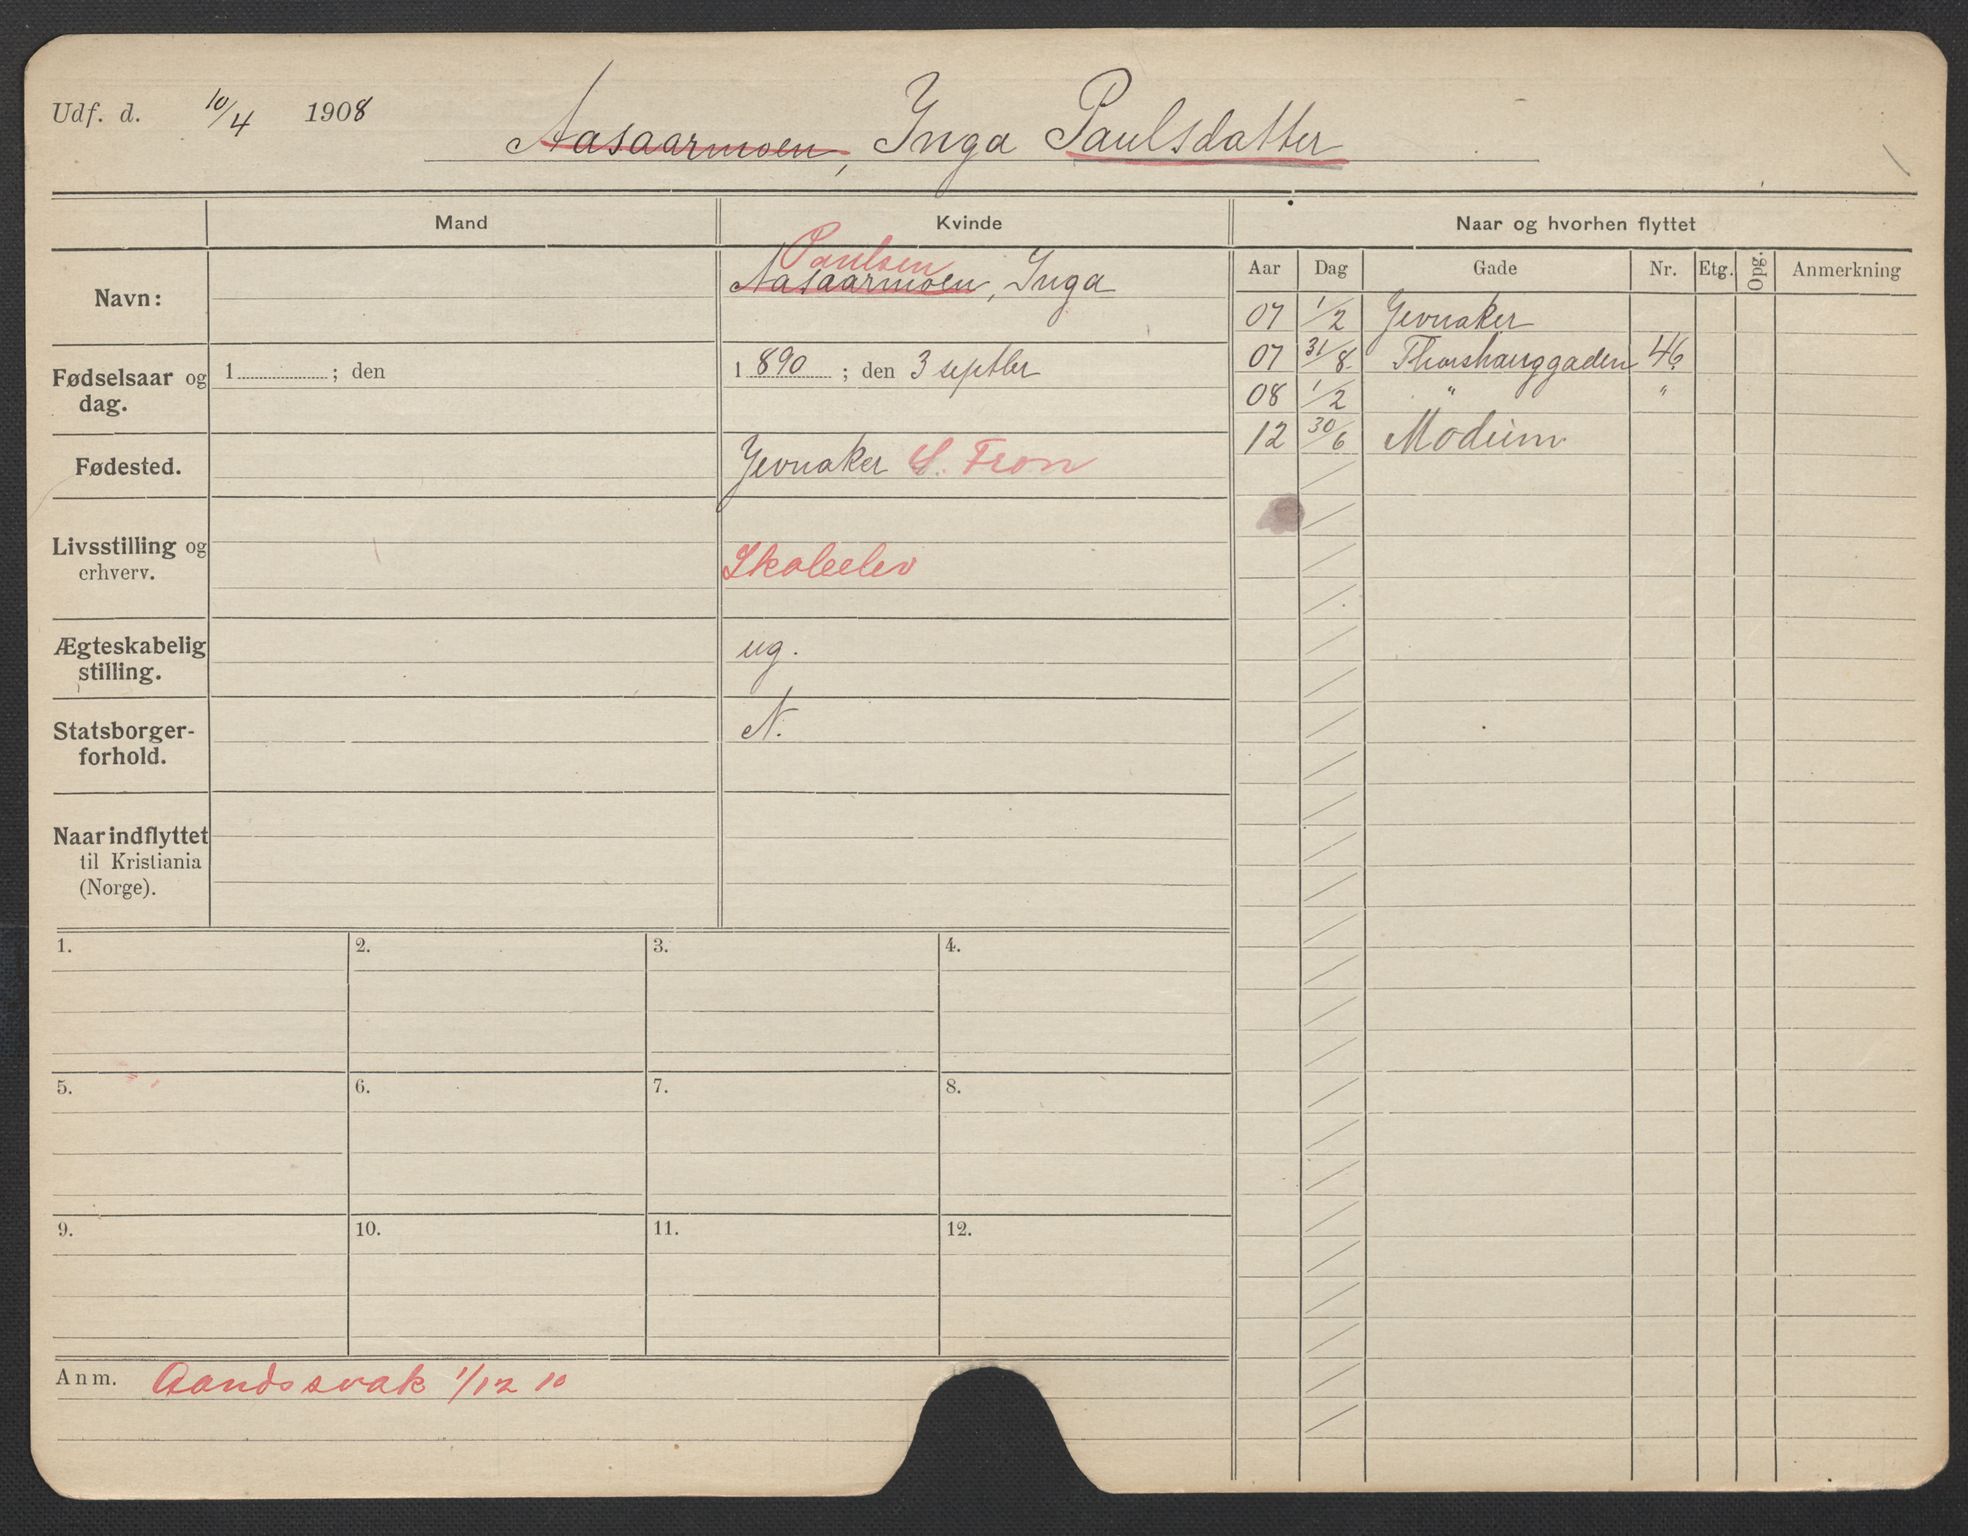 Udf. d. 10/4 1908
Aasaarmoen, Inga Paulsdatter
Mand
Kvinde
Naar og hvorhen flyttet
Aar Dag Gade Nr. Etg. Opg. Anmerkning
Navn:
Paulsen
Aasaarmoen, Inga
07 1/2 Jevnaker
07 31/8 Thorshauggaden 46
08 1/2 " "
12 30/6 Modum
Fødselsaar og dag.
1 ; den
1890 ; den 3 septbr
Fødested.
Jevnaker S. Fron
Livsstilling og
erhverv.
Skoleelev
Ægteskabelig
stilling.
ug.
Statsborger-
forhold.
N.
Naar indflyttet
til Kristiania
(Norge).
1. 2. 3. 4.
5. 6. 7. 8.
9. 10. 11. 12.
Anm. Aandssvak 1/12 10